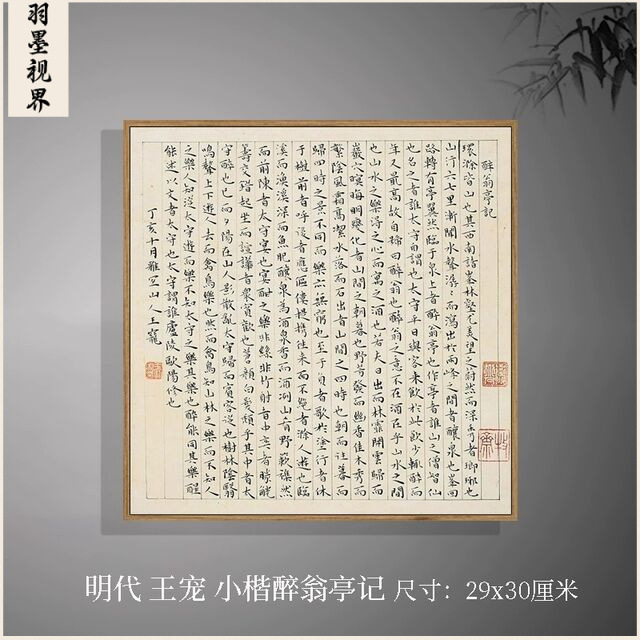 羽墨视界
醉翁亭記
環滁皆山也其西南諸峯林壑尤美望之蔚然而深秀者瑯琊也
山行六七里漸聞水聲潺〻而瀉出於兩峰之間者釀泉也峯回
路轉有亭翼然臨于泉上者醉翁亭也作亭者誰山之僧智仙
也名之者誰太守自謂也太守與客来飲於此飲少輒醉而
年又最高故自號曰醉翁也醉翁之意不在酒在乎山水之間
也山水之樂得之心而寓之酒也若夫日出而林霏開雲歸而
巖穴暝晦明變化者山間之朝暮也野芳發而幽香佳木秀而
繁陰風霜高潔水落而石出者山間之四時也朝而往暮而
歸四時之景不同而樂亦無窮也至于負者歌於塗行者休
于樹前者呼後者應傴僂提攜往来而不絕者滁人遊也臨
溪而漁溪深而魚肥釀泉為酒泉香而酒冽山肴野蔌雜然
而前陳者太守宴也宴酣之樂非絲非竹射者中弈者勝觥
籌交錯起坐而諠譁者衆賓歡也蒼顏白髮頹乎其中者太
守醉也已而夕陽在山人影散亂太守歸而賓客從也樹林陰翳
鳴聲上下遊人去而禽鳥樂也然而禽鳥知山林之樂而不知人
之樂人知從太守遊而樂而不知太守之樂其樂也醉能同其樂醒
能述以文者太守也太守謂誰廬陵歐陽脩也
丁亥十月雅宜山人王寵
明代 王宠 小楷醉翁亭记 尺寸：29x30厘米